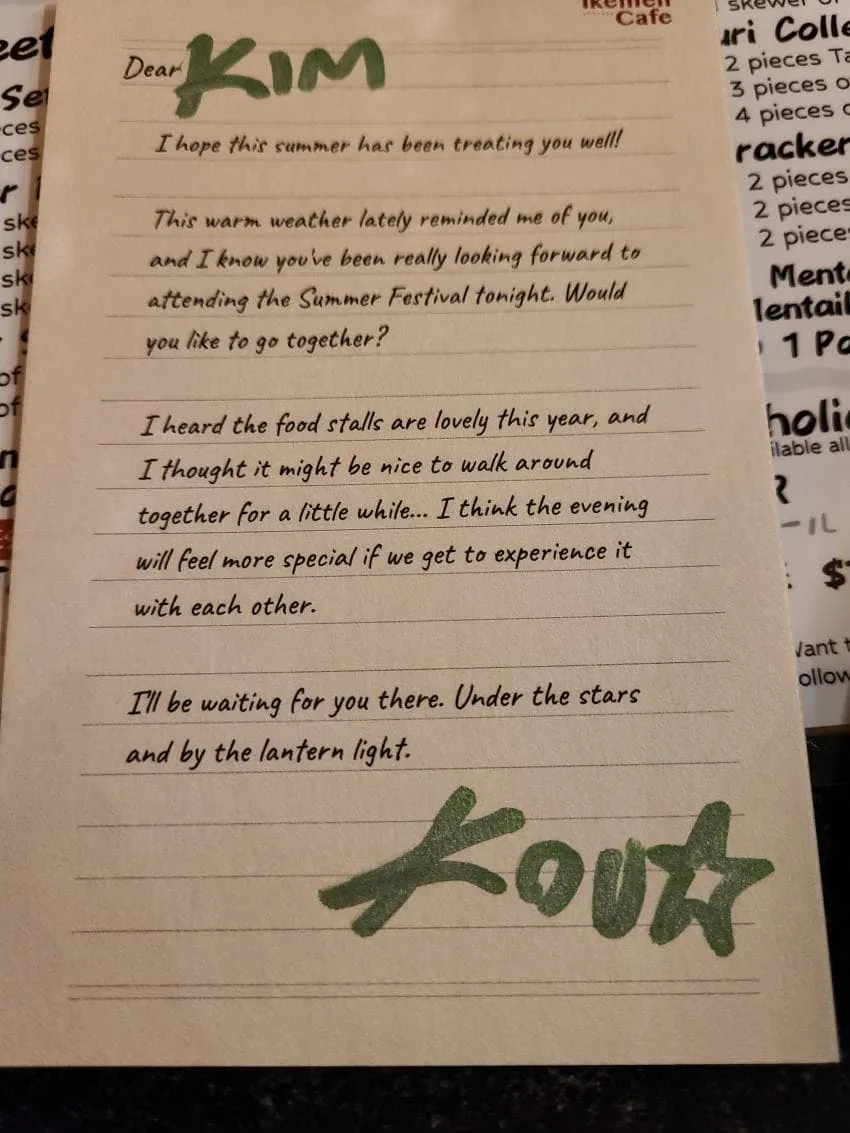 Cafe
Dear KIM
I hope this summer has been treating you well!
This warm weather lately reminded me of you,
and I know you've been really looking forward to
attending the Summer Festival tonight. Would
you like to go together?
I heard the food stalls are lovely this year, and
I thought it might be nice to walk around
together for a little while... I think the evening
will feel more special if we get to experience it
with each other.
I'll be waiting for you there. Under the stars
and by the lantern light.
KOU☆
2 pieces
3 pieces
4 pieces
2 pieces
2 pieces
2 pieces
1